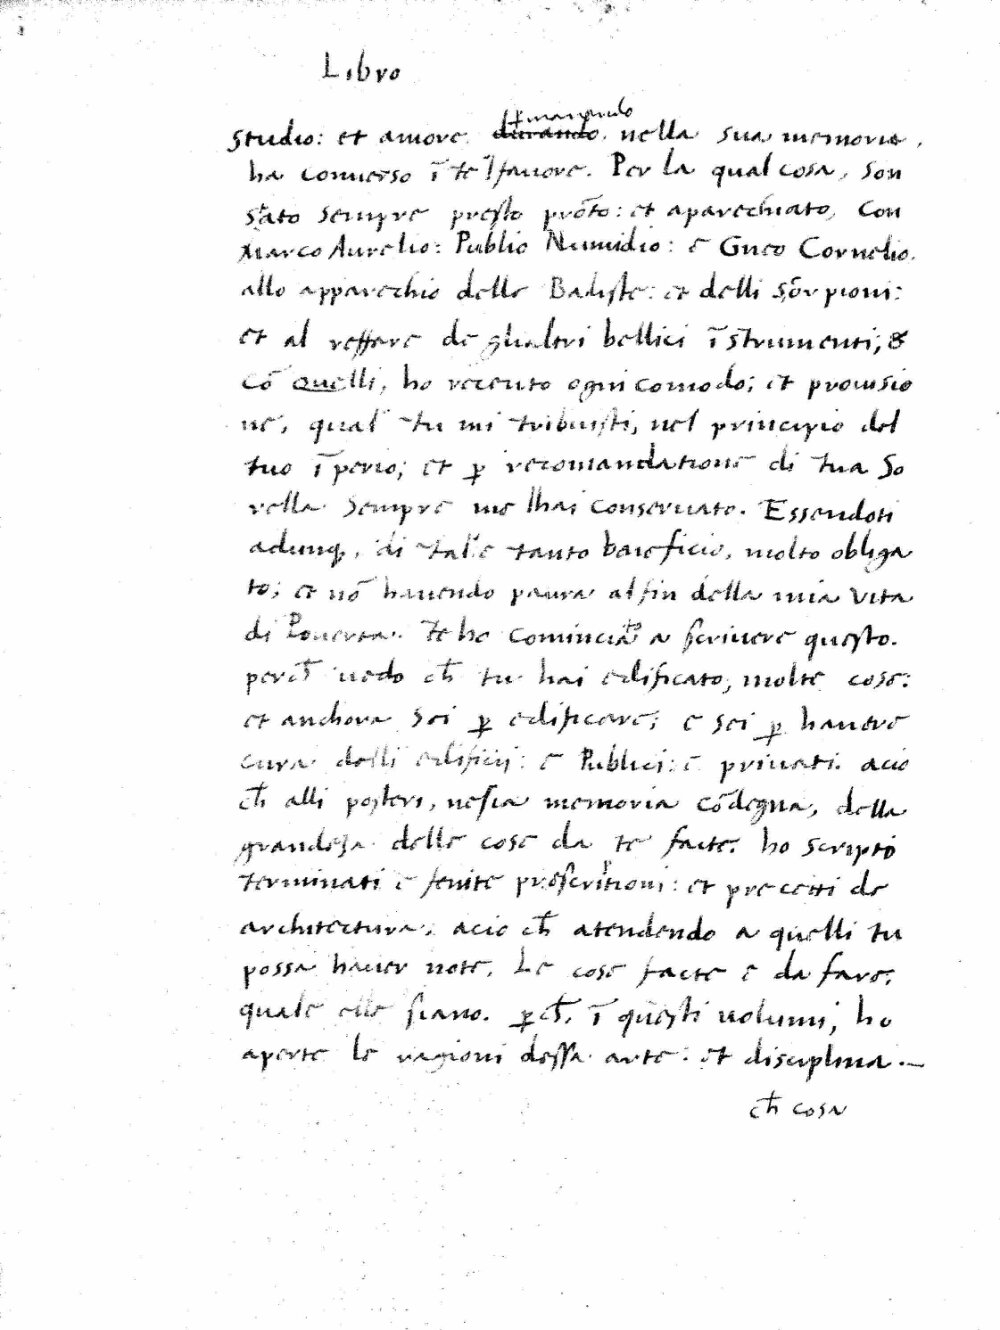 Libro
p̱manendo
Studio: et amore durando. nella sua memoria,
ha conuerso ī te il fauore. Per la qual cosa, son
stato sempre presto prōto: et aparechiato, con
Marco Aurelio: Publio Numidio: e Gneo Cornelio.
allo apparechio delle Baliste: et delli Scorpioni:
et al reffare de gli altri bellici īstrumenti; &
cō quelli, ho receuto ogni comodo; et prouisio
ne, qual tu mi tribuisti, nel principio del
tuo īperio; et ꝑ recomandatione di tua So
rella sempre me lhai conseruato. Essendoti
adunq, di tal e tanto beneficio, molto obliga
to; et nō hauendo paura al fin della mia vita
di Pouerta. Te ho cominciato a scriuere questo.
perch̄ uedo ch̄ tu hai edificato, molte cose:
et anchora sei ꝑ edificare; e sei ꝑ hauere
cura delli edificij: e Publici: e priuati. acio
ch̄ alli posteri, nesia memoria cōdegna, della
grandeza delle cose da te facte. ho scripto
terminati e fenite prescriptioni: et precetti de
architectura, acio ch̄ atendendo a quelli tu
possa hauer note. Le cose facte e da fare,
quale elle siano. ꝑch̄, ī questi uolumi, ho
aperte le ragioni dessa arte: et disciplina.—
ch̄ cosa